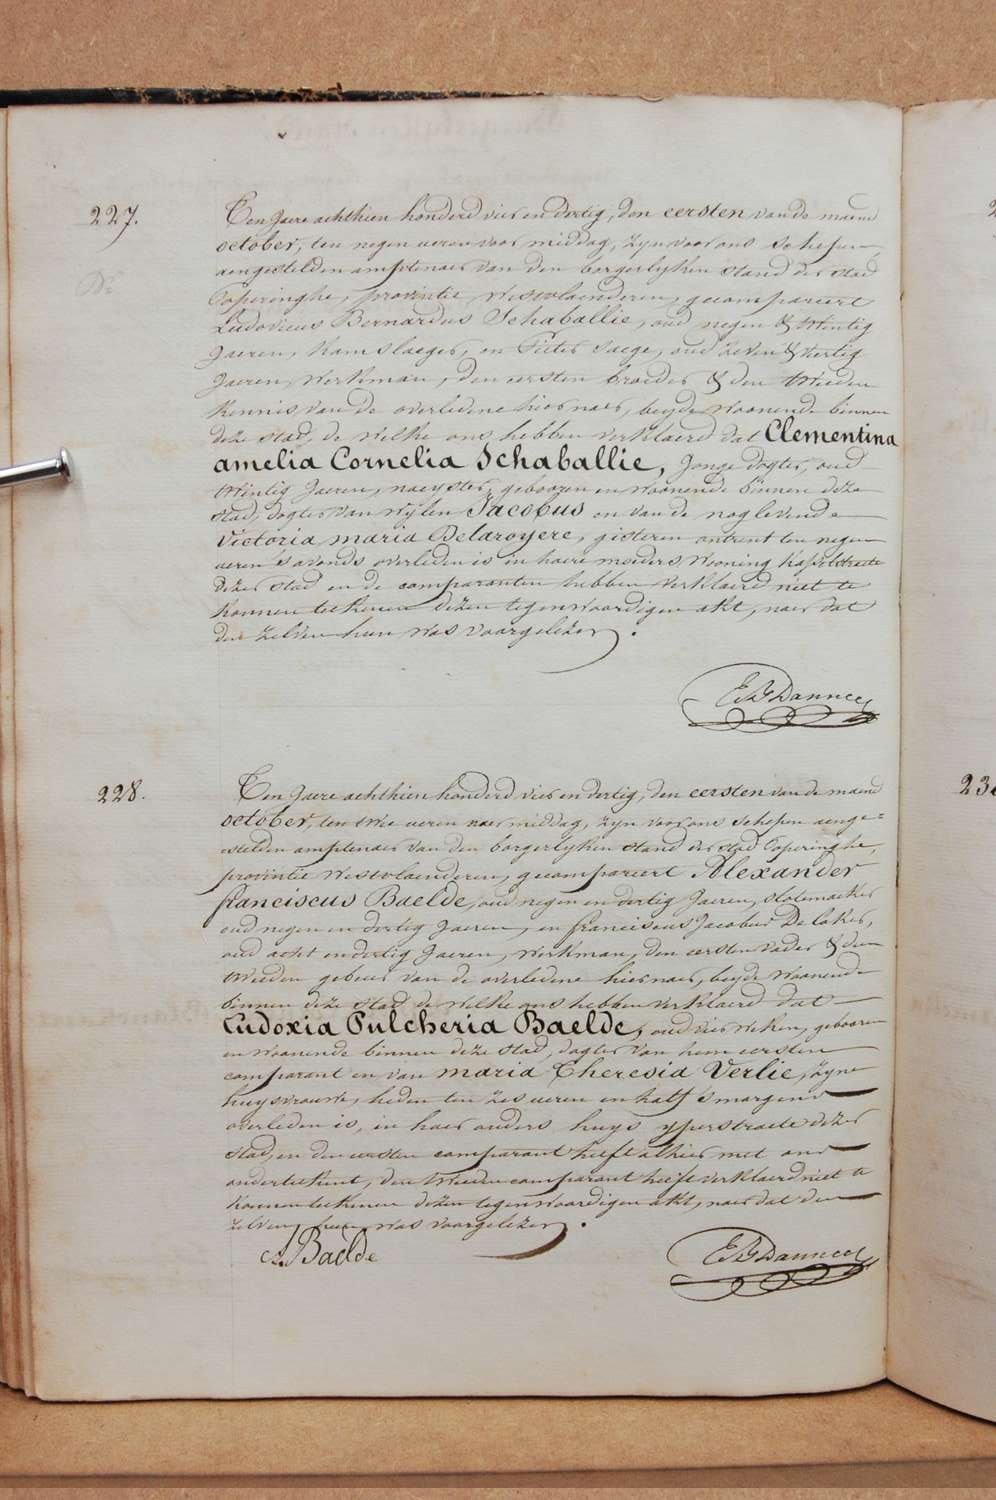 227.
Ten Jaere achthien honderd vier en dertig, den eersten van de maend
october, ten negen ueren voor middag, zyn voor ons schepen
aengestelden amptenaer van den borgerlyken stand der stad
Poperinghe, provintie Westvlaenderen, gecompareert
Ludovicus Bernardus Schaballie, oud negen & twintig
Jaeren, en Pieter Saege, oud zeven & veertig
Jaeren, Werkman, den eersten broeder & den tweeden
kennis van de overledene hier naer, beyde woonende binnen
deze stad, de welke ons hebben verklaerd dat Clementina
amelia Cornelia Schaballie, Jonge dogter, oud
twintig Jaeren, naeyster, gebooren en woonende binnen deze
stad, dogter van wylen Jacobus en van de noglevende
Victoria maria Delaroyere, gisteren ontrent ten negen
ueren s'avonds overleden is in haere moeders wooning
dezer stad en de comparanten hebben verklaerd niet te
konnen teekenen dezen tegenwoordigen akt, naer dat
den zelven hun was voorgelezen.
228.
Ten Jaere achthien honderd vier en dertig, den eersten van de maend
october, ten twee ueren naer middag, zyn voor ons schepen aenge=
stelden amptenaer van den borgerlyken stand der stad Poperinghe,
provintie Westvlaenderen, gecompareert Alexander
franciscus Baelde, oud negen en dertig Jaeren, slotemaeker
oud negen en dertig Jaeren, en franciscus Jacobus De Coker,
oud acht en dertig Jaeren, Werkman, den eersten vader & den
tweeden gebuer van de overledene hier naer, beyde woonende
binnen deze stad de welke ons hebben verklaerd dat
Ludoxia Pulcheria Baelde, oud vier weken, gebooren
en woonende binnen deze stad, dogter van hem eersten
comparant en van maria Theresia Verlie, zyne
huysvrouwe, heden ten zes ueren en half s'morgens
overleden is, in haer ouders huys yperstraete dezer
stad, en den eersten comparant heeft alhier met ons
onderteekent, den tweeden comparant heeft verklaerd niet te
konnen teekenen dezen tegenwoordigen akt, naer dat den
zelven hun was voorgelezen.
A. Baelde